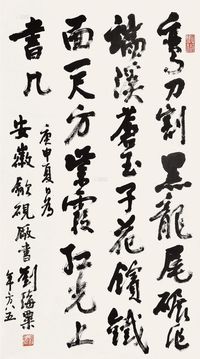 刀割黑龍尾碾作
端溪蒼玉子花鑌鐵
面一尺方紫霞紅光上
書几
庚申夏日為
安徽歙硯廠書劉海粟
年方八五